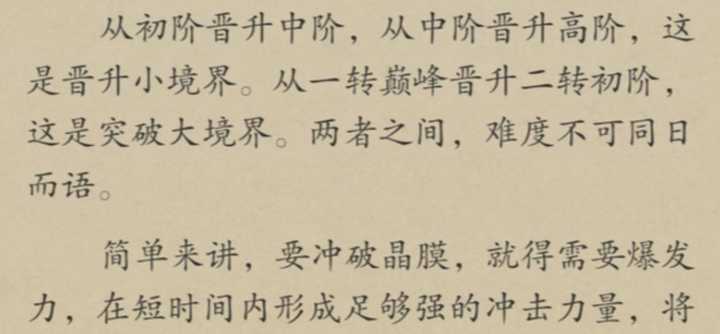 从初阶晋升中阶，从中阶晋升高阶，这
是晋升小境界。从一转巅峰晋升二转初阶，
这是突破大境界。两者之间，难度不可同日
而语。
简单来讲，要冲破晶膜，就得需要爆发
力，在短时间内形成足够强的冲击力量，将